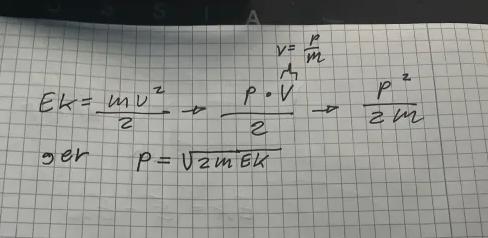 A
v = p/m
Ek = mv²/2 → p·v/2 → p²/2m
ger p = √2mEk